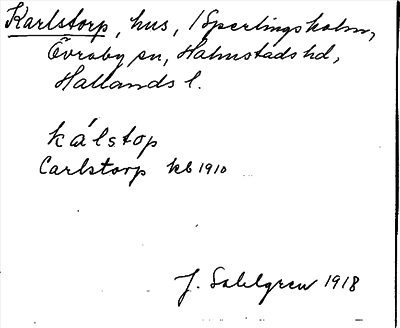 Karlstorp, hus, /Sperlingsholm,
Övraby sn, Halmstads hd,
Hallands l.
kálstop
Carlstorp kb 1910
J. Sahlgren 1918